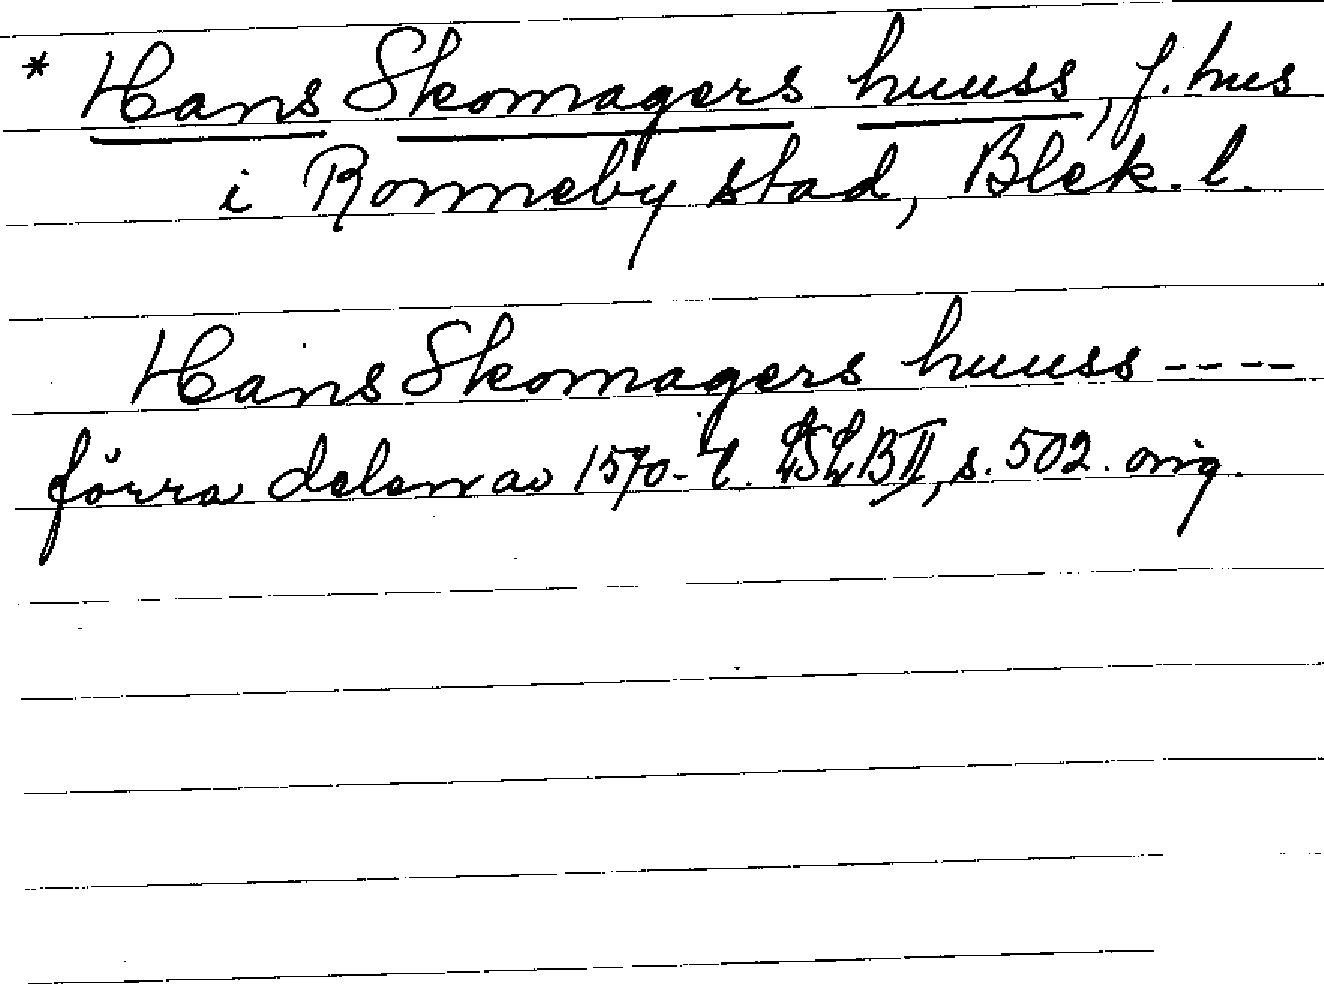 * Hans Skomagers huuss, f. hus
i Ronneby stad, Blek. l.
Hans Skomagers huuss ----
förra delen av 1570-t. LSLB II, s. 502. orig.